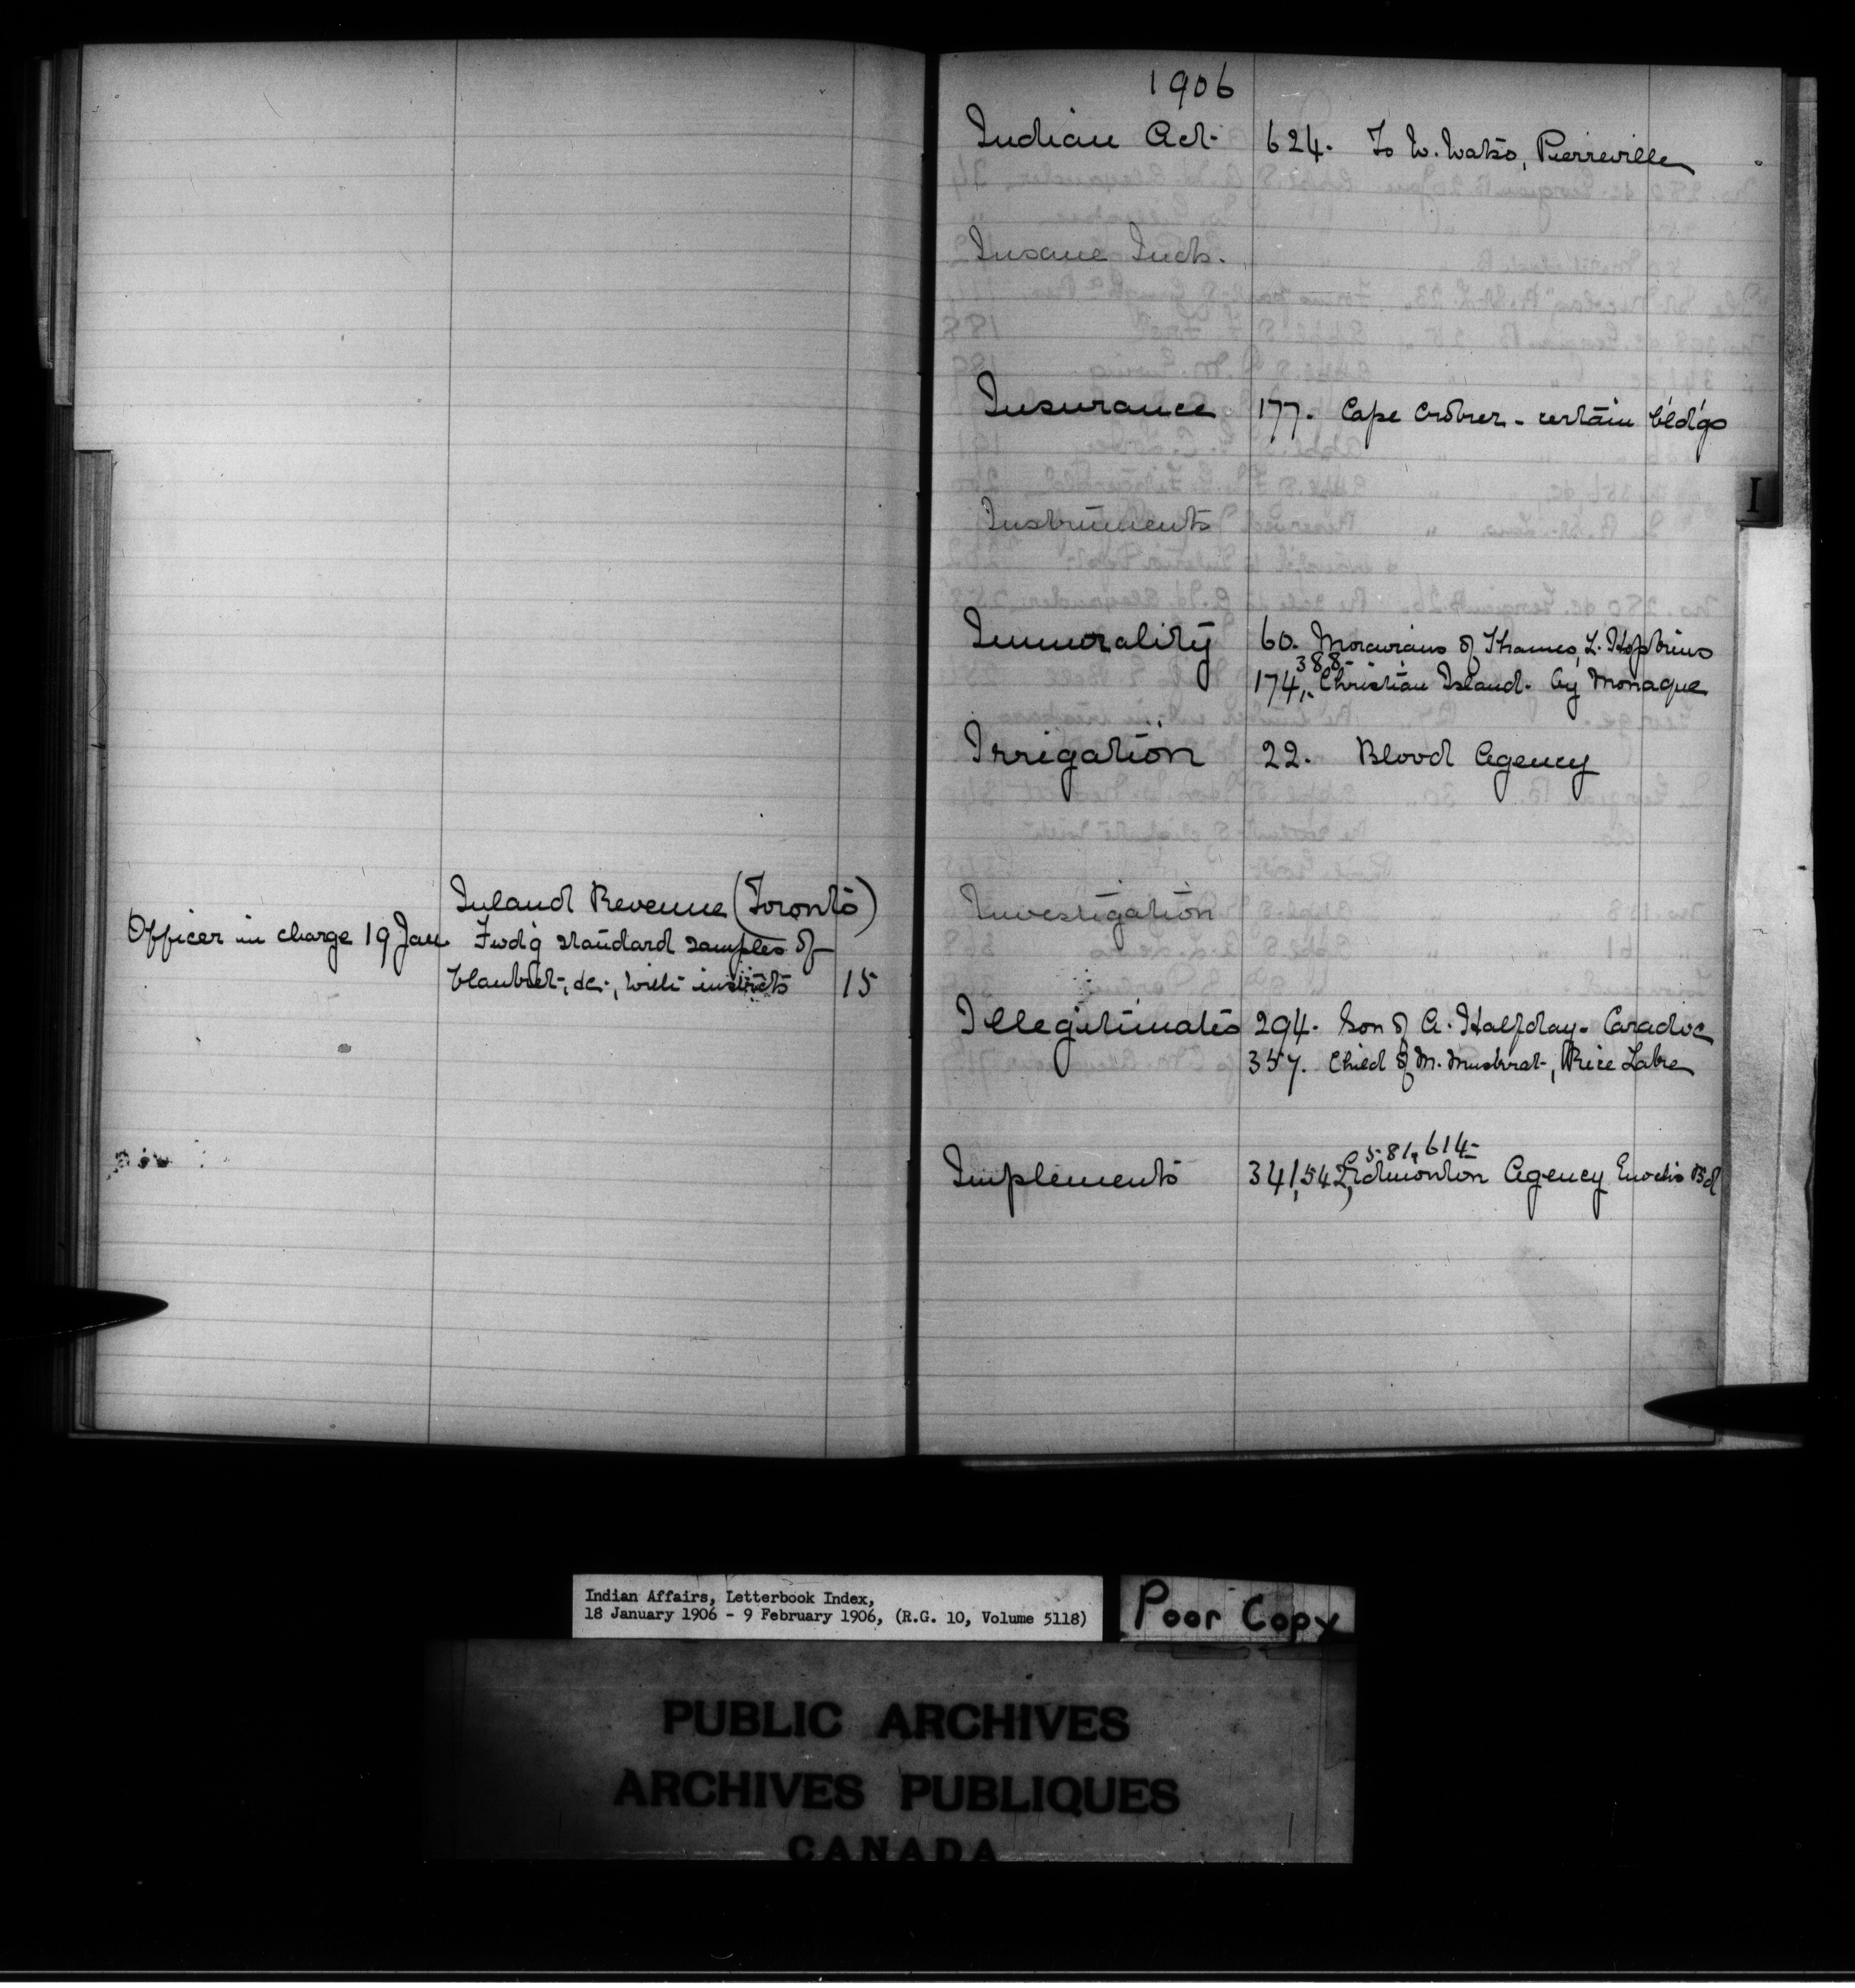 Inland Revenue (Toronto)
Officer in charge 19 Jan Fwd'g standard samples of
blanket, &c., with instructs 15
1906
Indian Act. 624. To W. Watso, Pierreville
Insane Inds.
Insurance 177. Cape Croker - certain bld'gs
I
Instruments
Immorality 60. Moravians of Thames, L. Hopkins
388-
174,. Christian Island. by Monague
Irrigation 22. Blood Agency
Investigation
Illegitimates 294. Son of A. Halfday - Caradoc
357. Child of M. Muskrat, Rice Lake
581, 614-
Implements 341, 542, Edmonton Agency Enochs Bd
Indian Affairs, Letterbook Index,
18 January 1906 - 9 February 1906, (R.G. 10, Volume 5118)
Poor Copy
PUBLIC ARCHIVES
ARCHIVES PUBLIQUES
CANADA